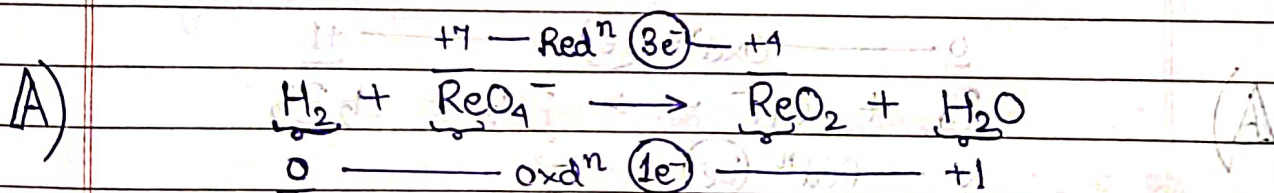 +7 — Redⁿ (3e⁻) — +4
A) H₂ + ReO₄⁻ ⟶ ReO₂ + H₂O
0 — oxdⁿ (1e⁻) — +1